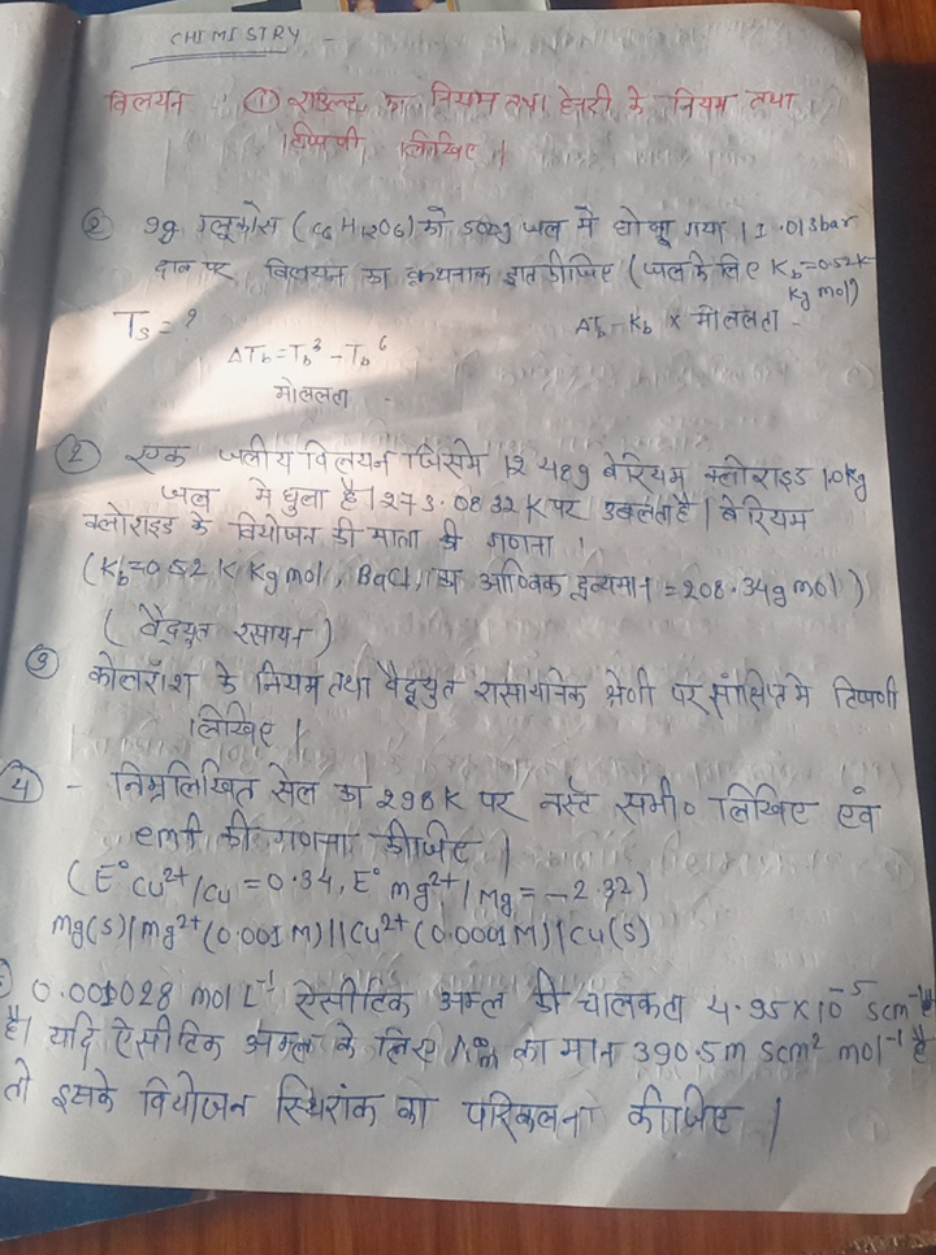 CHIMISTRY -
विलयन ① राउल्ट का नियम तथा हेनरी के नियम तथा
टिप्पणी लिखिए |
② 9g ग्लूकोस (C6 H12O6) को 500g जल में घोला गया | 1.013bar
दाब पर विलयन का क्वथनांक ज्ञात कीजिए (जल के लिए Kb=0.52K
Kg mol)
Ts = ?
ΔTb = Kb × मोललता -
ΔTb = Tb - Tb
मोललता -
② एक जलीय विलयन जिसमे 12 48g बेरियम क्लोराइड 1.0kg
जल मे घुला है | 273.0832 K पर उबलता है | बेरियम
क्लोराइड के वियोजन की मात्रा की गणना |
(Kb=0.52 K Kg mol, BaCl2 का आण्विक द्रव्यमान = 208.34g mol)
(वैद्युत रसायन)
③ कोलरॉश के नियम तथा वैद्युत रासायनिक श्रेणी पर संक्षिप्त मे टिप्पणी
लिखिए |
④ - निम्नलिखित सेल का 298K पर नर्स्ट समी० लिखिए एवं
emf की गणना कीजिए |
(E° Cu2+/Cu = 0.34, E° mg2+/Mg = -2.32)
mg(s)|mg2+(0.001M)||Cu2+(0.0001M)|Cu(s)
0.001028 mol L-1 ऐसीटिक अम्ल की चालकता 4.95×10-5 scm-1
है। यदि ऐसीटिक अम्ल के लिए Λ°m का मान 390.5m scm2 mol-1 है
तो इसके वियोजन स्थिरांक का परिकलन कीजिए |